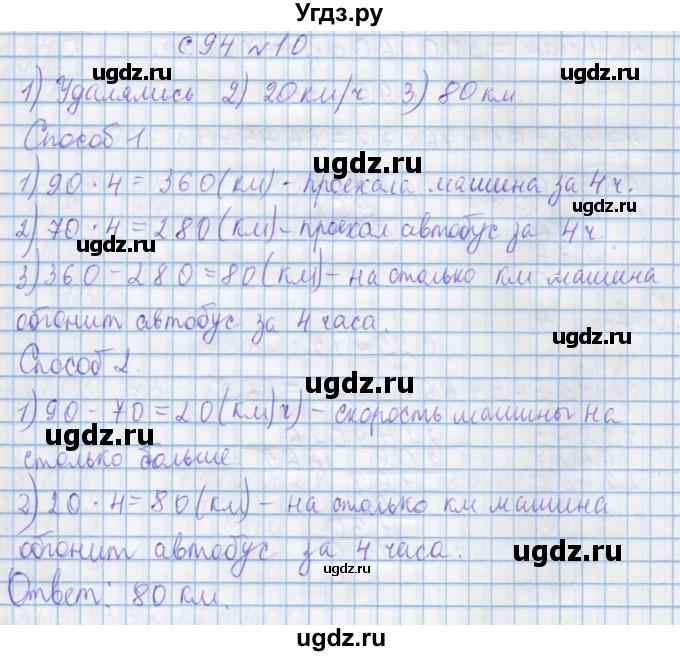 Угдз.ру
с. 94 №10
ugdz.ru ugdz.ru
1) Удалялись 2) 20 км/ч 3) 80 км.
Способ 1.
ugdz.ru
1) 90 · 4 = 360 (км) - проехала машина за 4 ч.
ugdz.ru
2) 70 · 4 = 280 (км) - проехал автобус за 4 ч.
ugdz.ru
3) 360 - 280 = 80 (км) - на столько км машина
обгонит автобус за 4 часа.
Способ 2.
ugdz.ru
1) 90 - 70 = 20 (км/ч) - скорость машины на
ugdz.ru ugdz.ru
столько больше.
2) 20 · 4 = 80 (км) - на столько км машина
обгонит автобус за 4 часа.
ugdz.ru ugdz.ru
Ответ: 80 км.
ugdz.ru
ugdz.ru